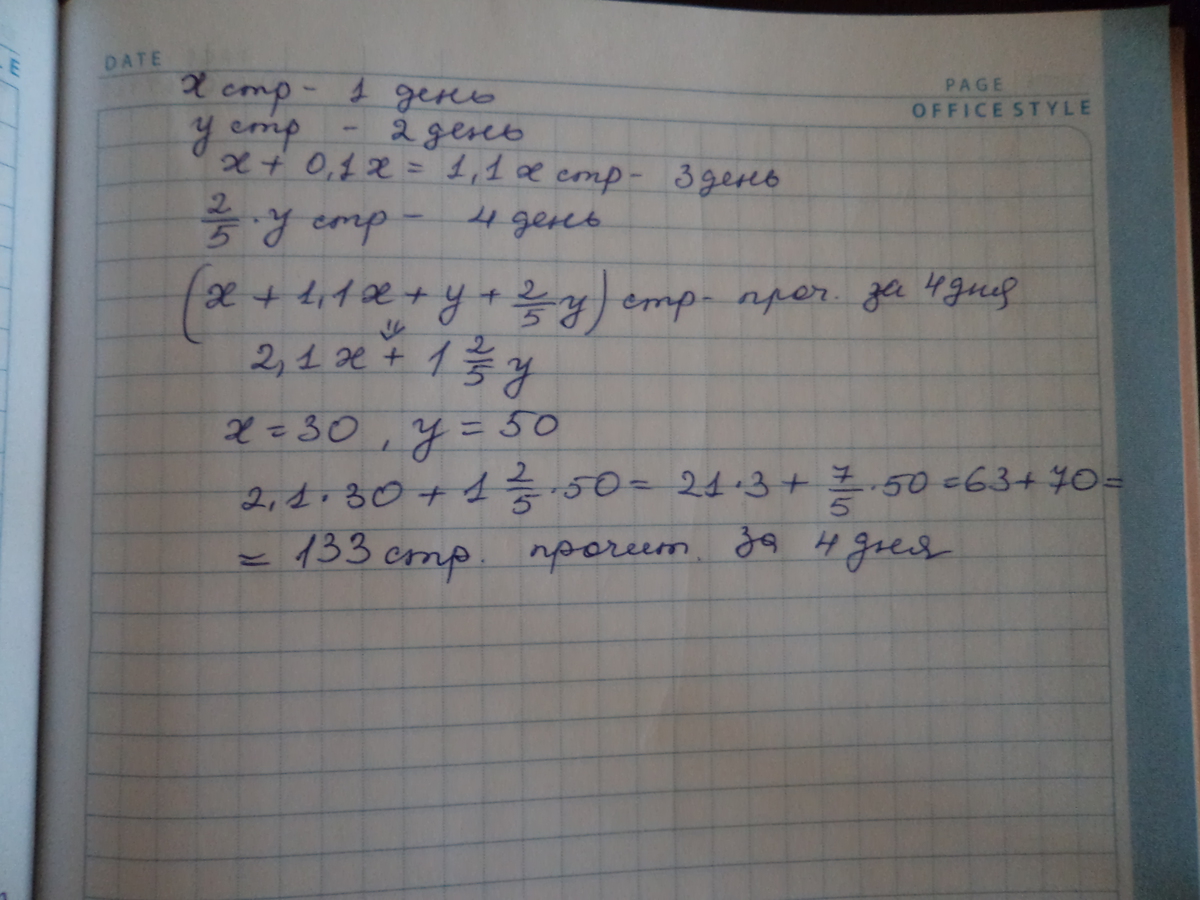 DATE
PAGE
OFFICE STYLE
x стр - 1 день
y стр - 2 день
x + 0,1x = 1,1x стр - 3 день
2/5 · y стр - 4 день
(x + 1,1x + y + 2/5 y) стр - проч. за 4 дня
2,1x + 1 2/5 y
x = 30 , y = 50
2,1 · 30 + 1 2/5 · 50 = 21 · 3 + 7/5 · 50 = 63 + 70 =
= 133 стр. прочит. за 4 дня